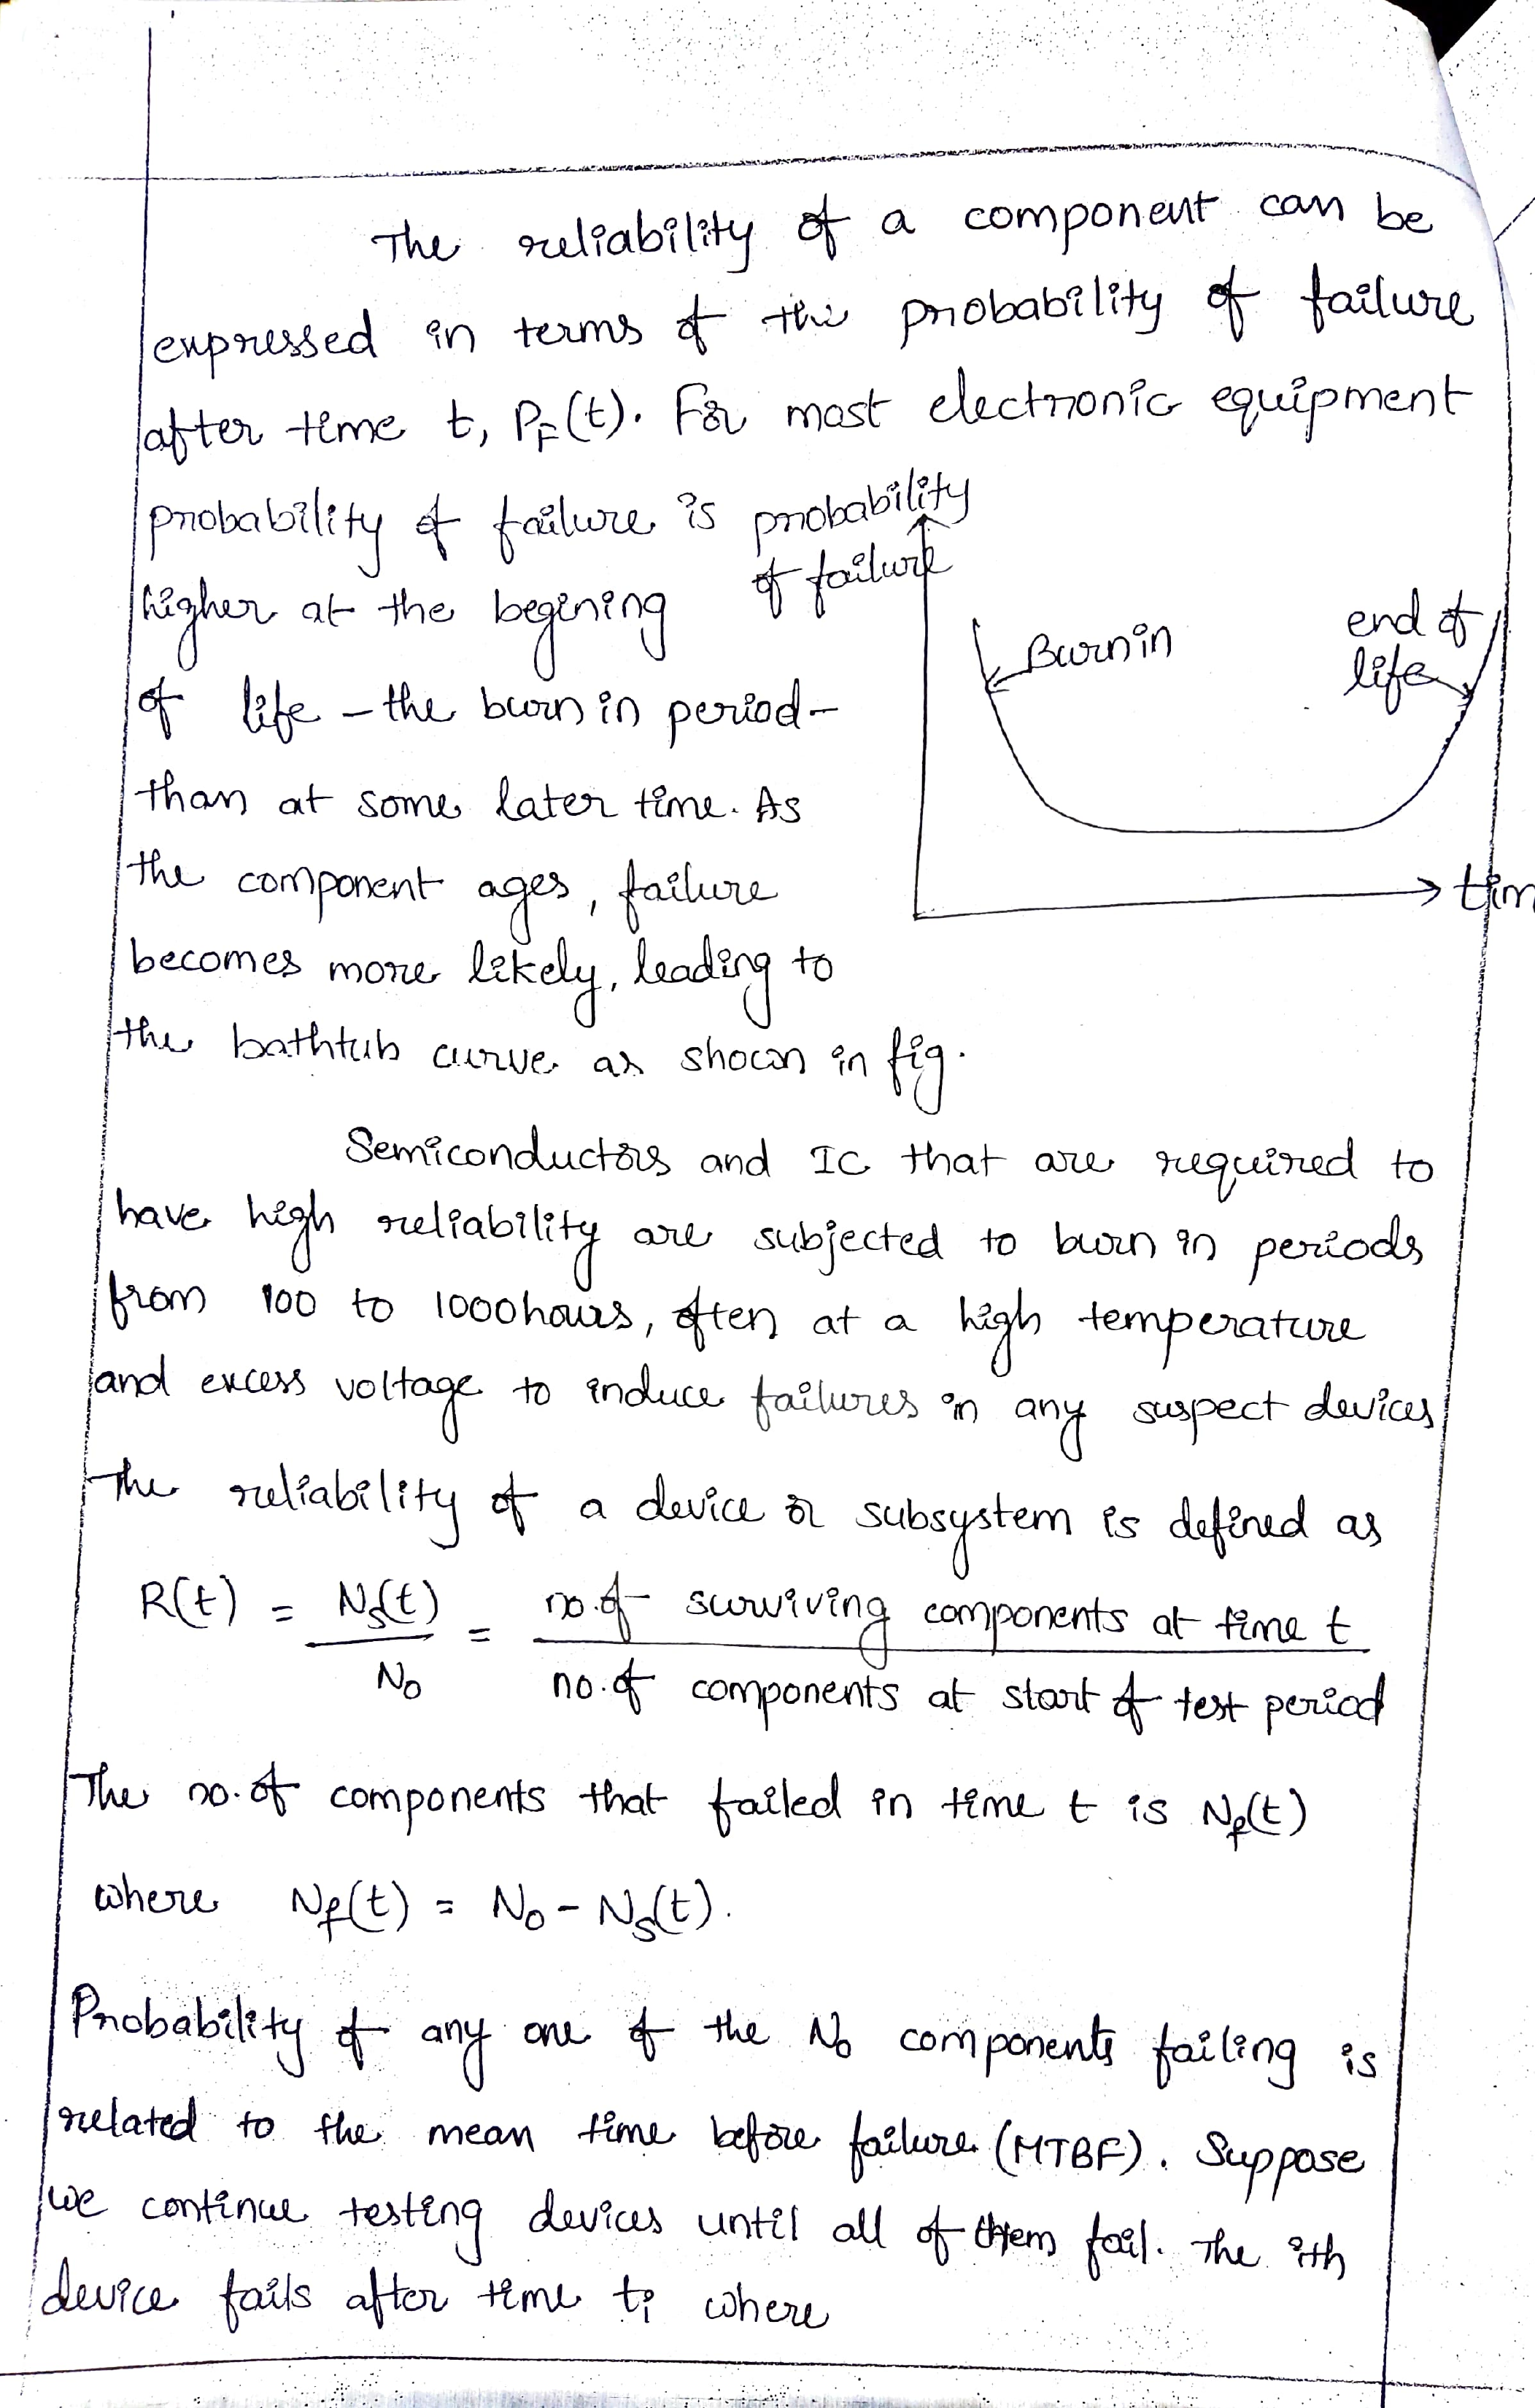 The reliability of a component can be
expressed in terms of the probability of failure
after time t, P_F(t). For most electronic equipment
probability of failure is
higher at the begining
of life - the burn in period -
than at some later time. As
the component ages, failure
becomes more likely, leading to
the bathtub curve as shown in fig.
probability
of failure
Burnin
end of
life
tim
Semiconductors and IC that are required to
have high reliability are subjected to burn in periods
from 100 to 1000hours, often at a high temperature
and excess voltage to induce failures in any suspect devices
The reliability of a device or subsystem is defined as
R(t) = N_s(t)/N_0 = no. of surviving components at time t / no. of components at start of test period
The no. of components that failed in time t is N_f(t)
where N_f(t) = N_0 - N_s(t).
Probability of any one of the N_0 components failing is
related to the mean time before failure (MTBF). Suppose
we continue testing devices until all of them fail. The ith
device fails after time t_i where